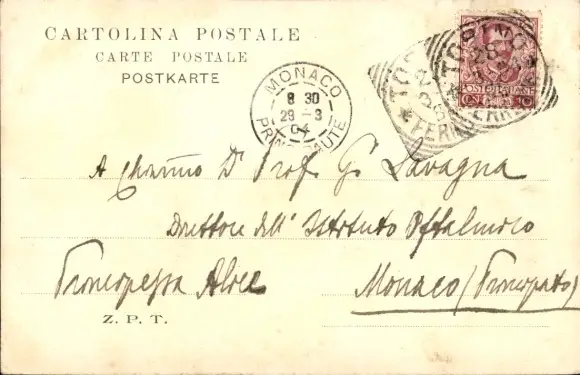 CARTOLINA POSTALE
CARTE POSTALE
POSTKARTE
MONACO
8 30
29 - 3
04
PRINCIPAUTÉ
TORINO
28
FERR
POSTE ITALIANE
CENT. 10
A Chiarmo Dr Prof. G. Lavagna
Direttore dell' Istituto Oftalmico
Principessa Alice
Monaco (Principato)
Z. P. T.